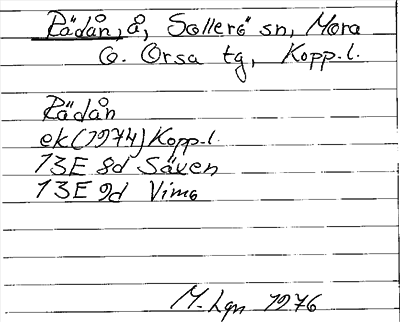 Rädån, å, Sollerö sn, Mora
o. Orsa tg, Kopp.l.
Rädån
ek (1974) Kopp.l.
13E 8d Säven
13E 9d Vimo
M. Lgn 1976